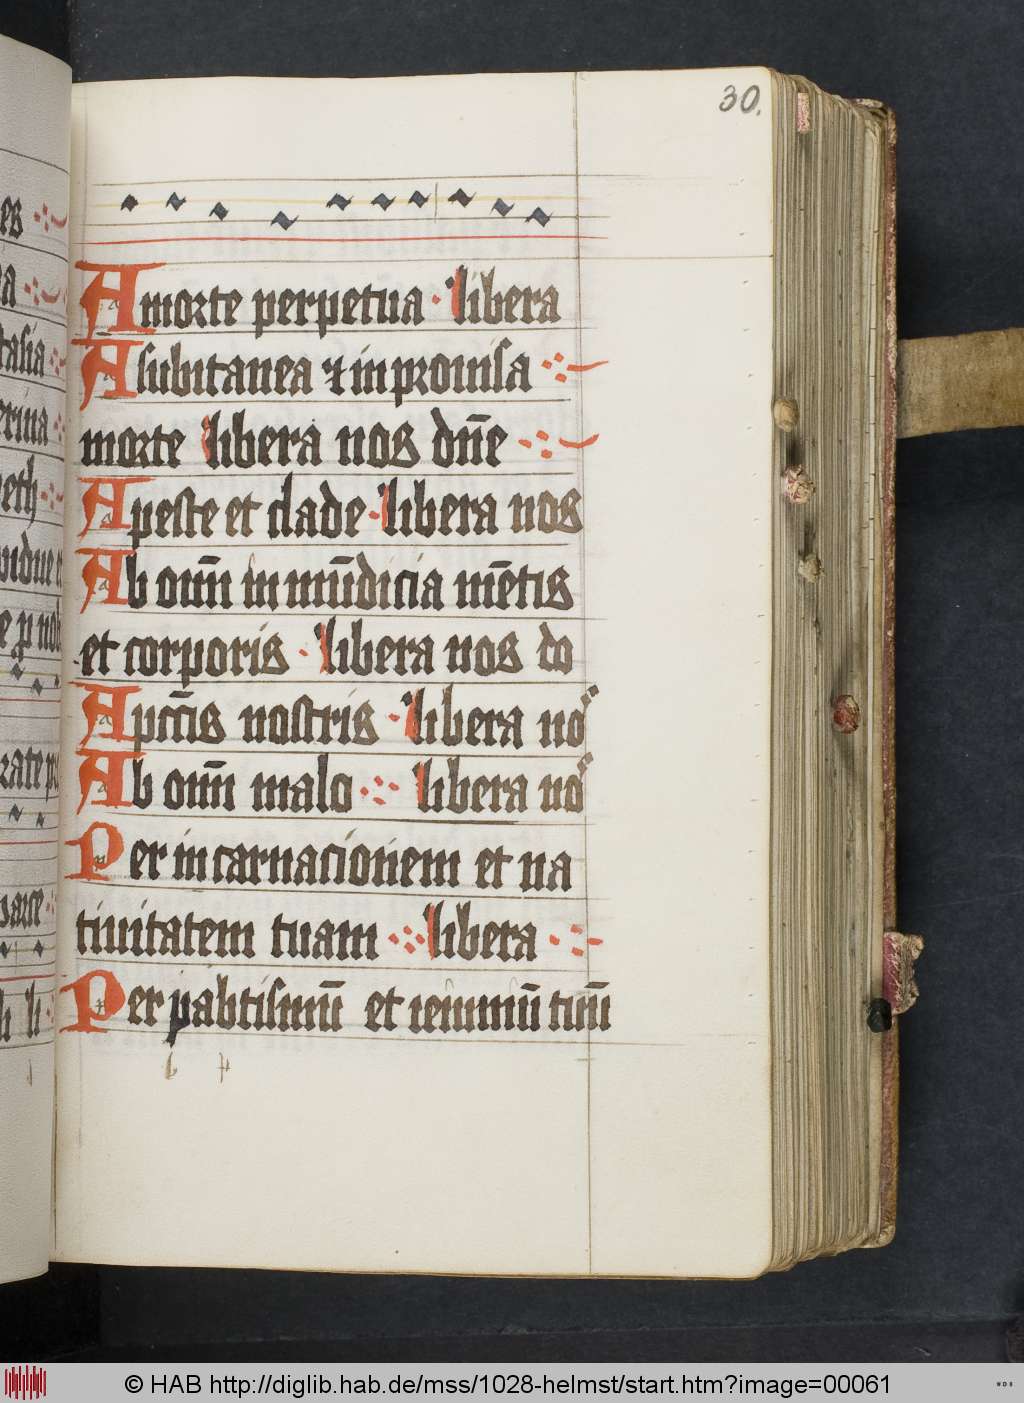 30.
A morte perpetua libera
A subitanea ⁊ in prouisa
morte libera nos dn̄e
A peste et clade libera nos
Ab oīm in mūdicia mētis
et corporis libera nos do
A pctīs nostris libera no
Ab oīm malo libera no
Per incarnacionem et na
tiuitatem tuam libera
Per pabtismū et ieiuniū tuū
es
a
tasia
erina
beth
vidue
e p nob
rate
parce
li li
© HAB http://diglib.hab.de/mss/1028-helmst/start.htm?image=00061